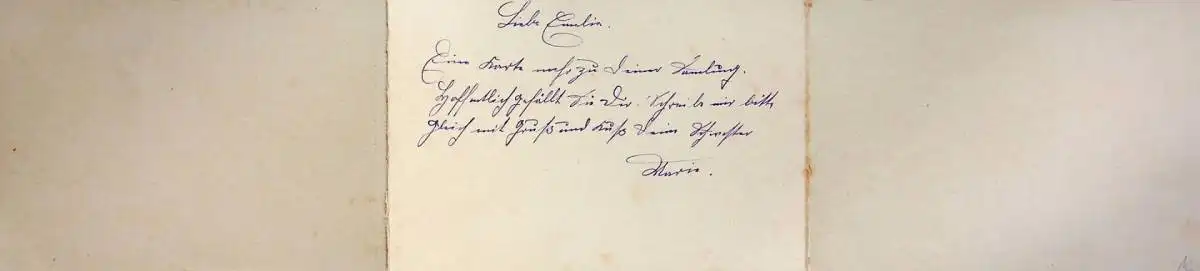 Liebe Emilie.
Eine Karte mehr zu Deiner Samlung.
Hoffentlich gefällt Sie Dir. Schreibe mir bitte
gleich mit Gruß und Kuß Deine Schwester
Marie.